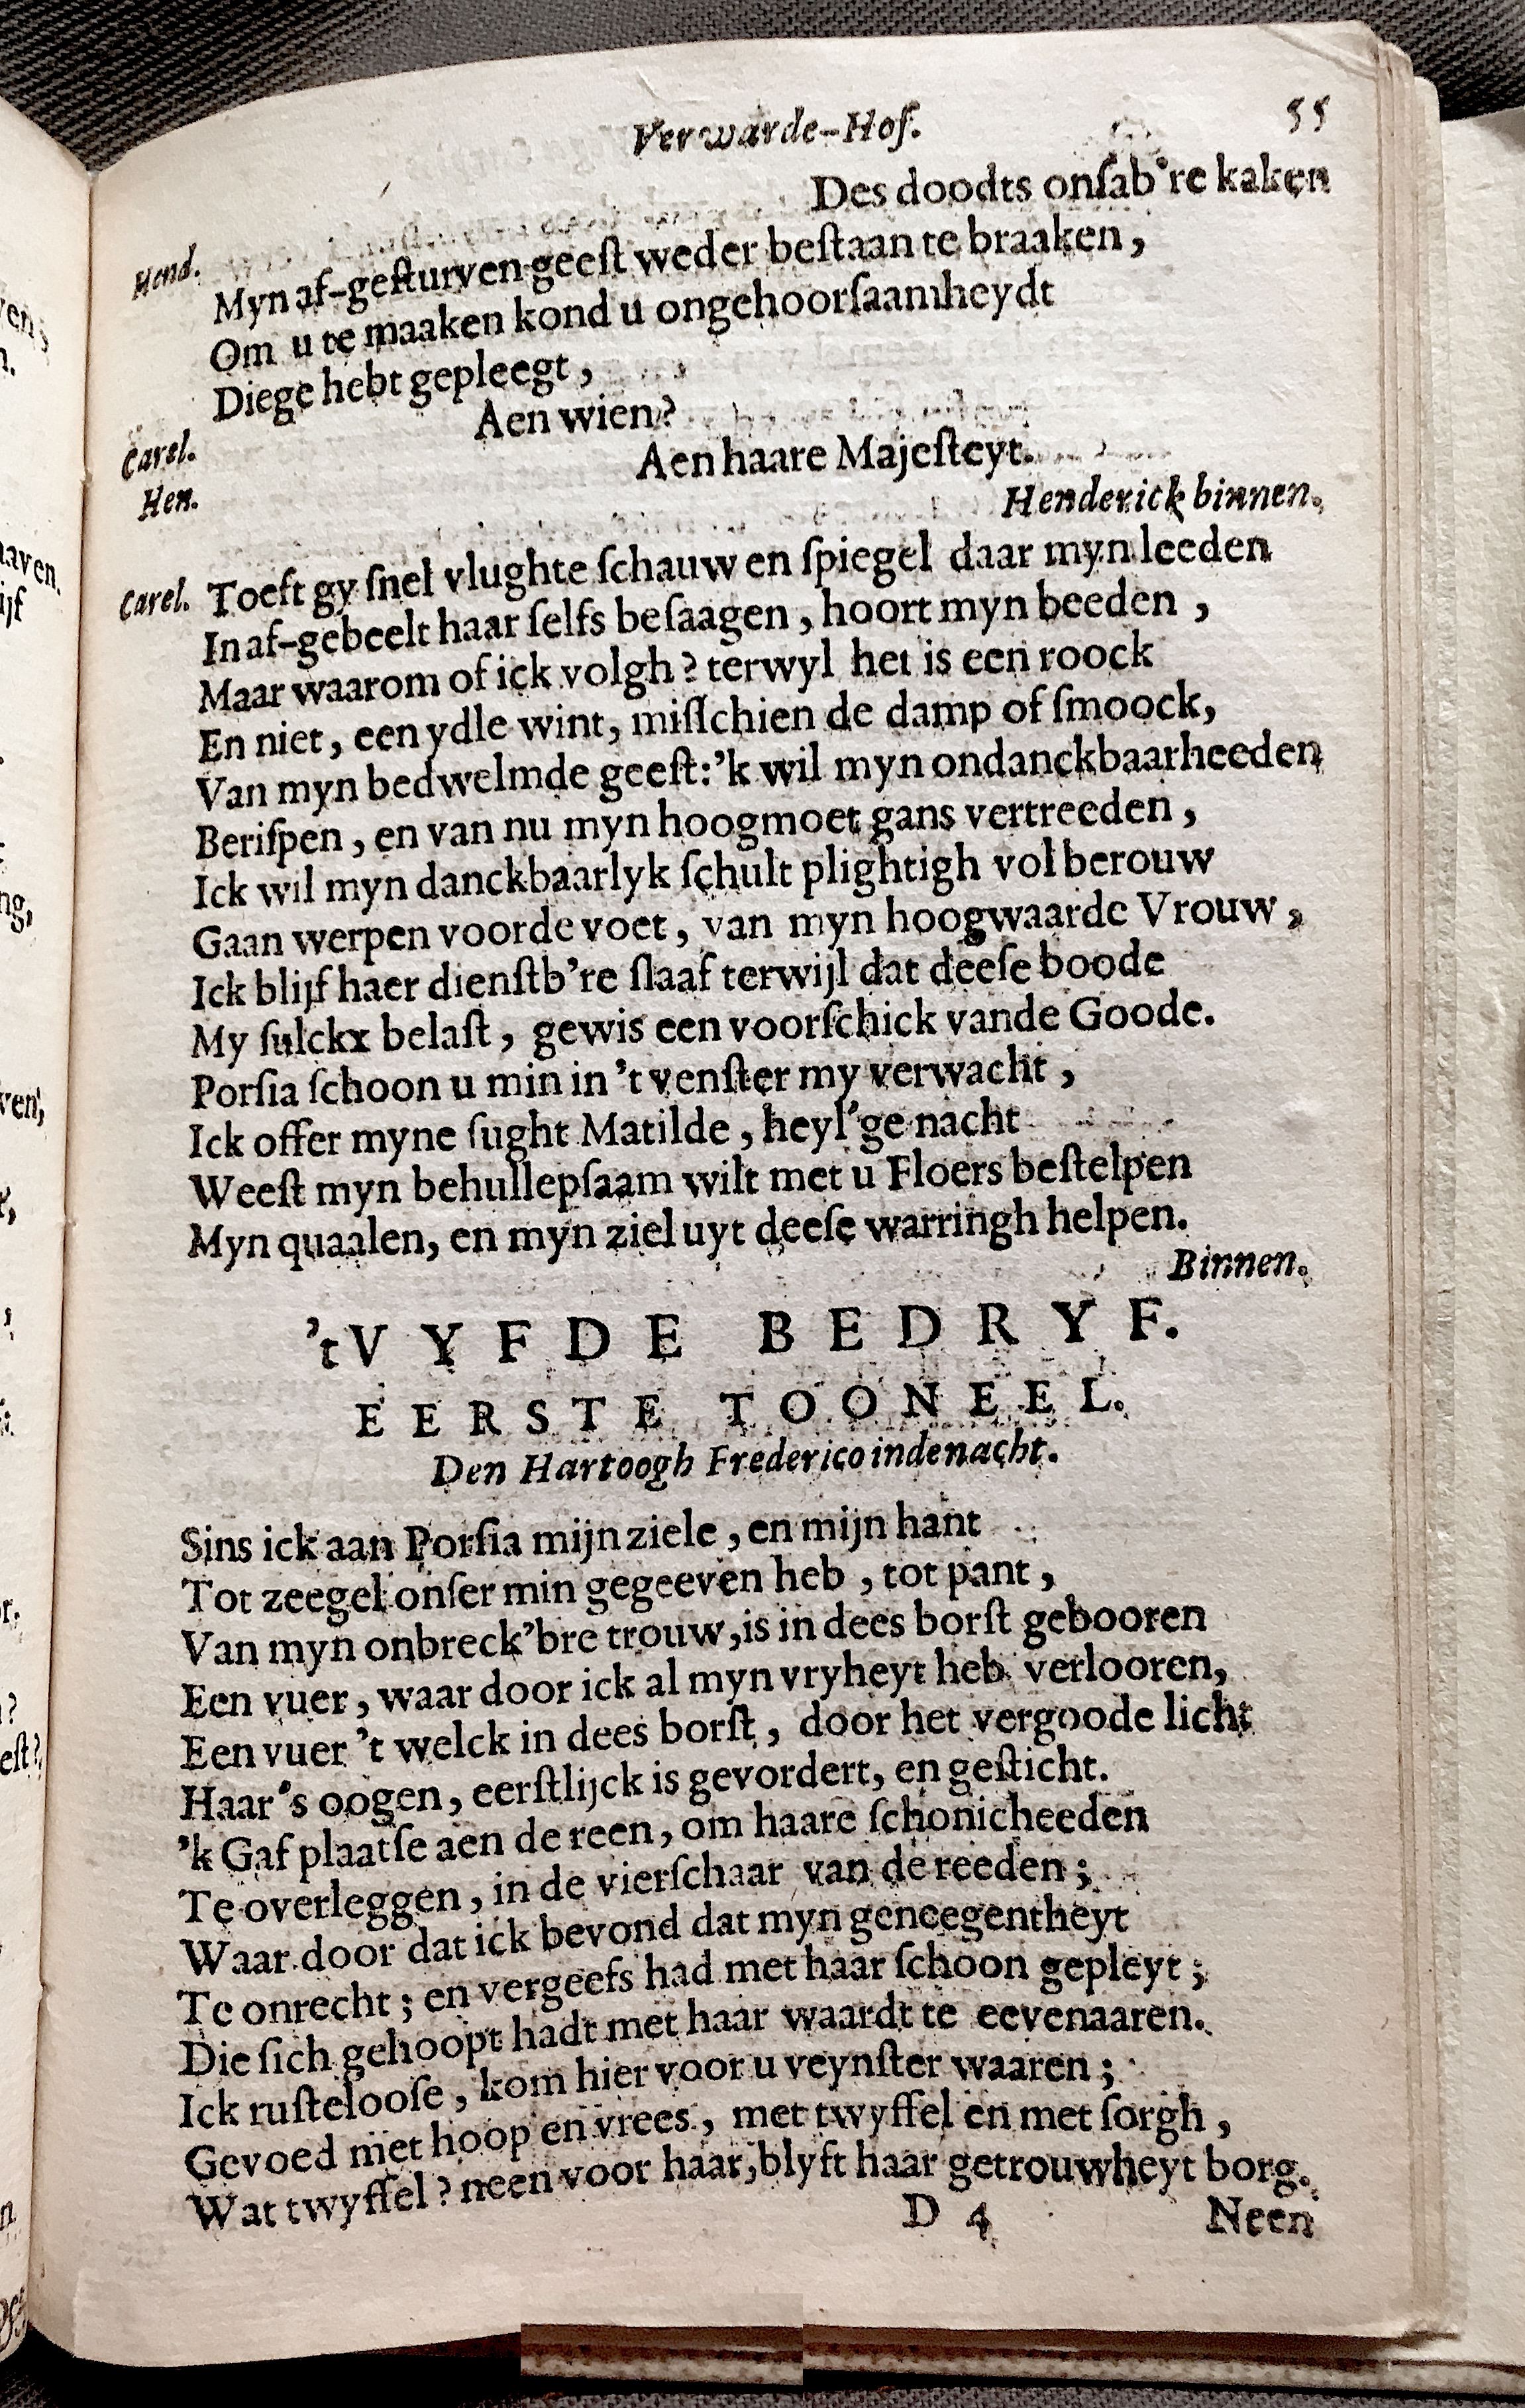 Verwarde-Hof. 55
Hend. Des doodts onſab're kaken
Myn af-geſturven geeſt weder beſtaan te braaken,
Om u te maaken kond u ongehoorſaamheydt
Diege hebt gepleegt,
Carel. Aen wien?
Hen. Aen haare Majeſteyt.
Henderick binnen.
Carel. Toeft gy ſnel vlughte ſchauw en ſpiegel daar myn leeden
In af-gebeelt haar ſelfs beſaagen, hoort myn beeden,
Maar waarom of ick volgh? terwyl het is een roock
En niet, een ydle wint, miſſchien de damp of ſmoock,
Van myn bedwelmde geeſt: 'k wil myn ondanckbaarheeden
Beriſpen, en van nu myn hoogmoet gans vertreeden,
Ick wil myn danckbaarlyk ſchult plightigh vol berouw
Gaan werpen voorde voet, van myn hoogwaarde Vrouw,
Ick blijf haer dienſtb're ſlaaf terwijl dat deeſe boode
My ſulckx belaſt, gewis een voorſchick vande Goode.
Porſia ſchoon u min in 't venſter my verwacht,
Ick offer myne ſught Matilde, heyl'ge nacht
Weeſt myn behullepſaam wilt met u Floers beſtelpen
Myn quaalen, en myn ziel uyt deeſe warringh helpen.
Binnen.
'tVYFDE BEDRYF.
EERSTE TOONEEL.
Den Hartoogh Frederico indenacht.
Sins ick aan Porſia mijn ziele, en mijn hant
Tot zeegel onſer min gegeeven heb, tot pant,
Van myn onbreck'bre trouw, is in dees borſt gebooren
Een vuer, waar door ick al myn vryheyt heb verlooren,
Een vuer 't welck in dees borſt, door het vergoode licht
Haar's oogen, eerſtlijck is gevordert, en geſticht.
'k Gaf plaatſe aen de reen, om haare ſchonicheeden
Te overleggen, in de vierſchaar van de reeden;
Waar door dat ick bevond dat myn geneegentheyt
Te onrecht; en vergeefs had met haar ſchoon gepleyt;
Die ſich gehoopt hadt met haar waardt te eevenaaren.
Ick ruſtelooſe, kom hier voor u veynſter waaren;
Gevoed met hoop en vrees, met twyffel en met ſorgh,
Wat twyffel? neen voor haar, blyft haar getrouwheyt borg.
D 4 Neen